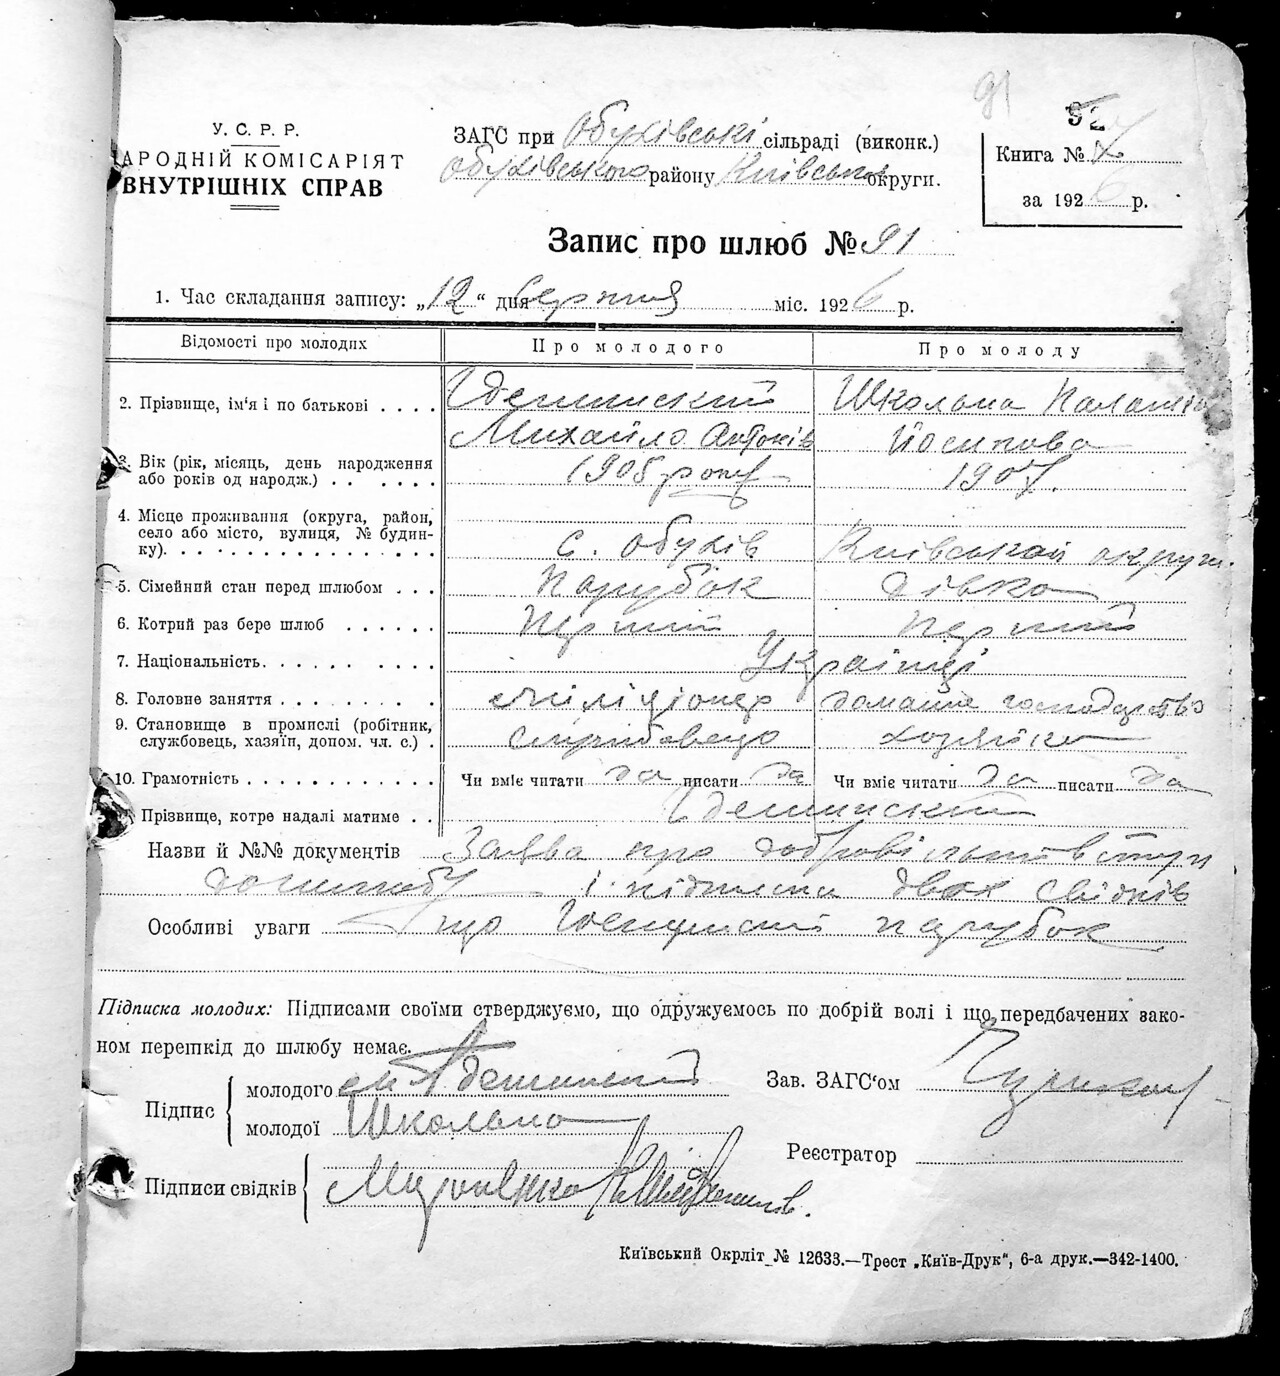 91
92
У. С. Р. Р.
АРОДНІЙ КОМІСАРІЯТ
ВНУТРІШНІХ СПРАВ
ЗАГС при Обухівські сільраді (виконк.)
Обухівського району Київської округи.
Книга №
за 1926 р.
Запис про шлюб № 91
1. Час складання запису: „12“ дня серпня міс. 1926 р.
Відомості про молодих
Про молодого
Про молоду
2. Прізвище, ім'я і по батькові . . . .
Михайло Антонів
Школьна
Йосипова
3. Вік (рік, місяць, день народження
або років од народж.) . . . . . .
1905 року
1907.
4. Місце проживання (округа, район,
село або місто, вулиця, № будин-
ку). . . . . . . . . . . . . . . .
с. Обухів
Київської округи.
5. Сімейний стан перед шлюбом . . .
Парубок
Дівка
6. Котрий раз бере шлюб . . . . .
Перший
Перший
7. Національність. . . . . . . . . .
Українці
8. Головне заняття . . . . . . . . .
міліціонер
домашнє господарство
9. Становище в промислі (робітник,
службовець, хазяїн, допом. чл. с.) .
службовець
хозяйка
10. Грамотність . . . . . . . . . . .
Чи вміє читати да писати да
Чи вміє читати да писати да
Прізвище, котре надалі матиме . .
Назви й №№ документів Заява про добровільний вступ
до шлюбу і підписка двох свідків
Особливі уваги що парубок
Підписка молодих: Підписами своїми стверджуємо, що одружуємось по добрій волі і що передбачених зако-
ном перешкід до шлюбу немає.
Підпис
молодого
молодої Школьна
Зав. ЗАГС'ом
Реєстратор
Підписи свідків
Київський Окрліт № 12633.—Трест „Київ-Друк“, 6-а друк.—342-1400.